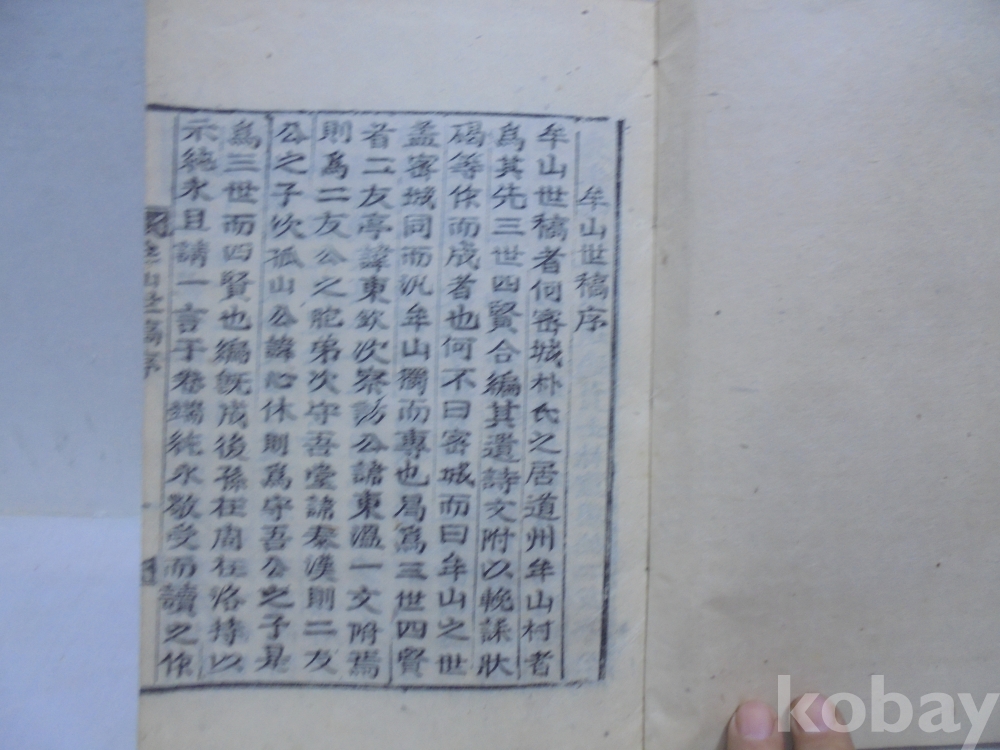 牟山世稿序
牟山世稿者何密城朴氏之居道州牟山村者
爲其先三世四賢合編其遺詩文附以輓誄狀
碣等作而成者也何不曰密城而曰牟山之世
盖密城同而汎牟山獨而專也曷爲三世四賢
首二友亭諱東欽次察訪公諱東 一文附焉
則爲二友公之胞弟次守吾堂諱泰漢則二友
公之子次孤山公諱心休則爲守吾公之子是
爲三世而四賢也編旣成後孫在周在洛持以
示純永且請一言于卷端純永敬受而讀之作
牟山世稿序
kobay